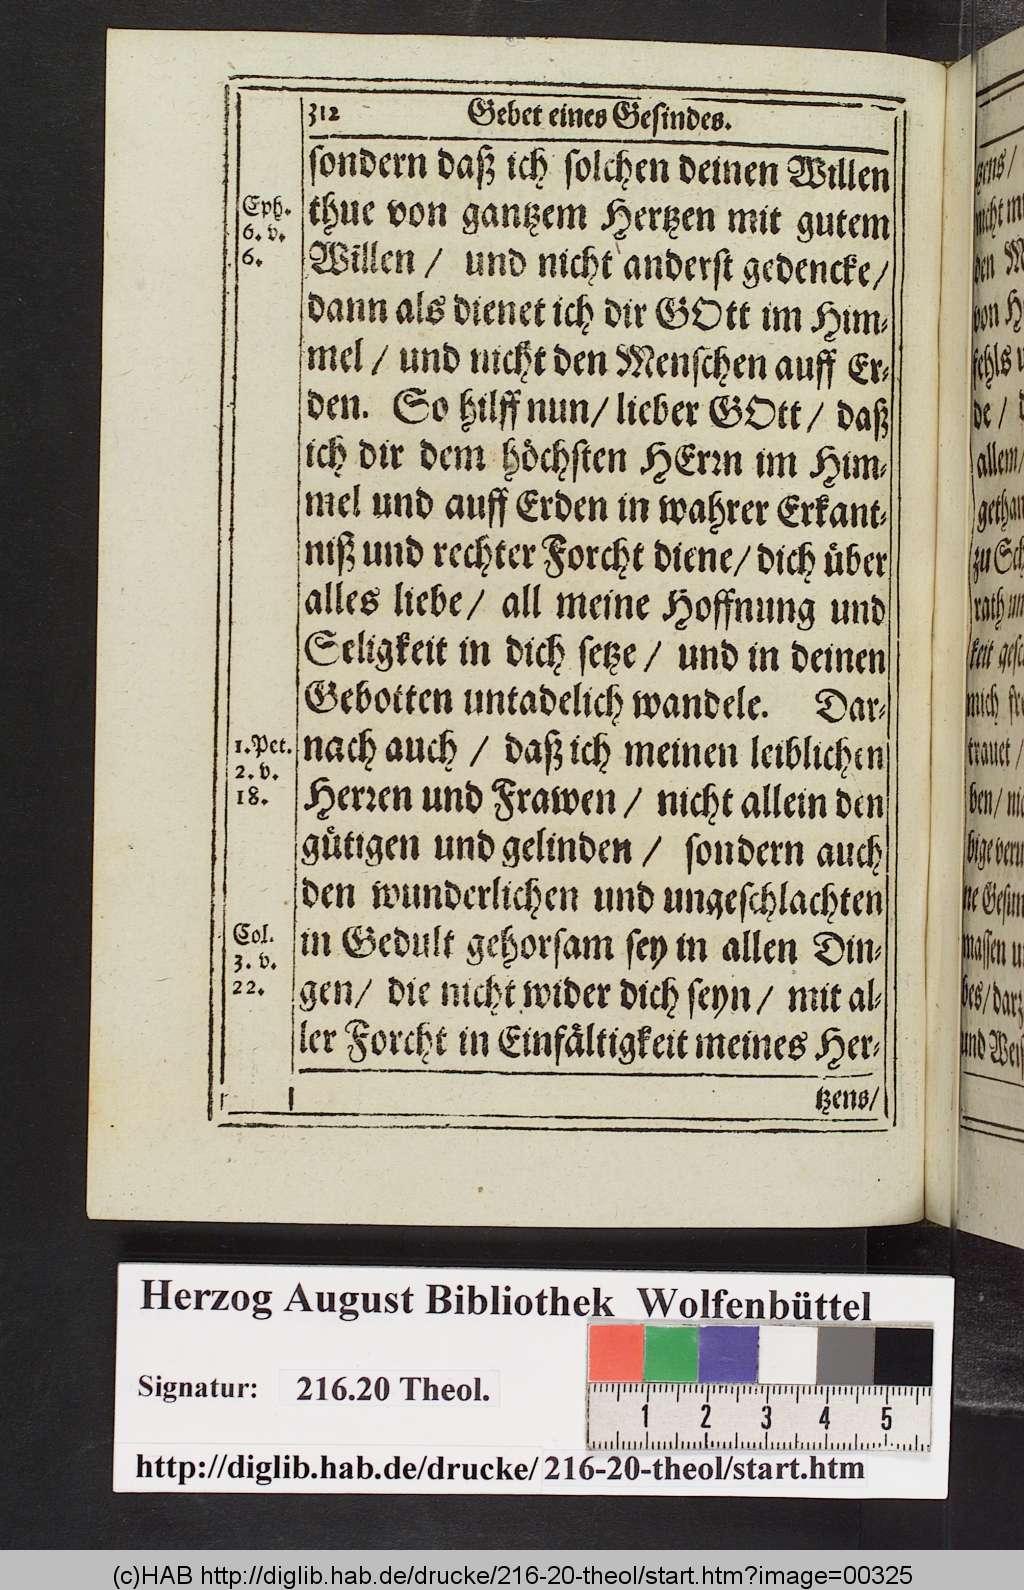 312 Gebet eines Gesindes.
sondern daß ich solchen deinen Willen
thue von gantzem Hertzen mit gutem
Willen / und nicht anderst gedencke /
dann als dienet ich dir GOtt im Him-
mel / und nicht den Menschen auff Er-
den. So hilff nun / lieber GOtt / daß
ich dir dem höchsten HErrn im Him-
mel und auff Erden in wahrer Erkant-
niß und rechter Forcht diene / dich über
alles liebe / all meine Hoffnung und
Seligkeit in dich setze / und in deinen
Gebotten untadelich wandele. Dar-
nach auch / daß ich meinen leiblichen
Herren und Frawen / nicht allein den
gütigen und gelinden / sondern auch
den wunderlichen und ungeschlachten
in Gedult gehorsam sey in allen Din-
gen / die nicht wider dich seyn / mit al-
ler Forcht in Einfältigkeit meines Her-
tzens /
Eph.
6. v.
6.
1. Pet.
2. v.
18.
Col.
3. v.
22.
tzens /
nicht
den
von
de /
allem /
zu
rath
keit
mich
ben / 
massen
und
Herzog August Bibliothek Wolfenbüttel
Signatur: 216.20 Theol.
1 2 3 4 5
http://diglib.hab.de/drucke/216-20-theol/start.htm
(c)HAB http://diglib.hab.de/drucke/216-20-theol/start.htm?image=00325